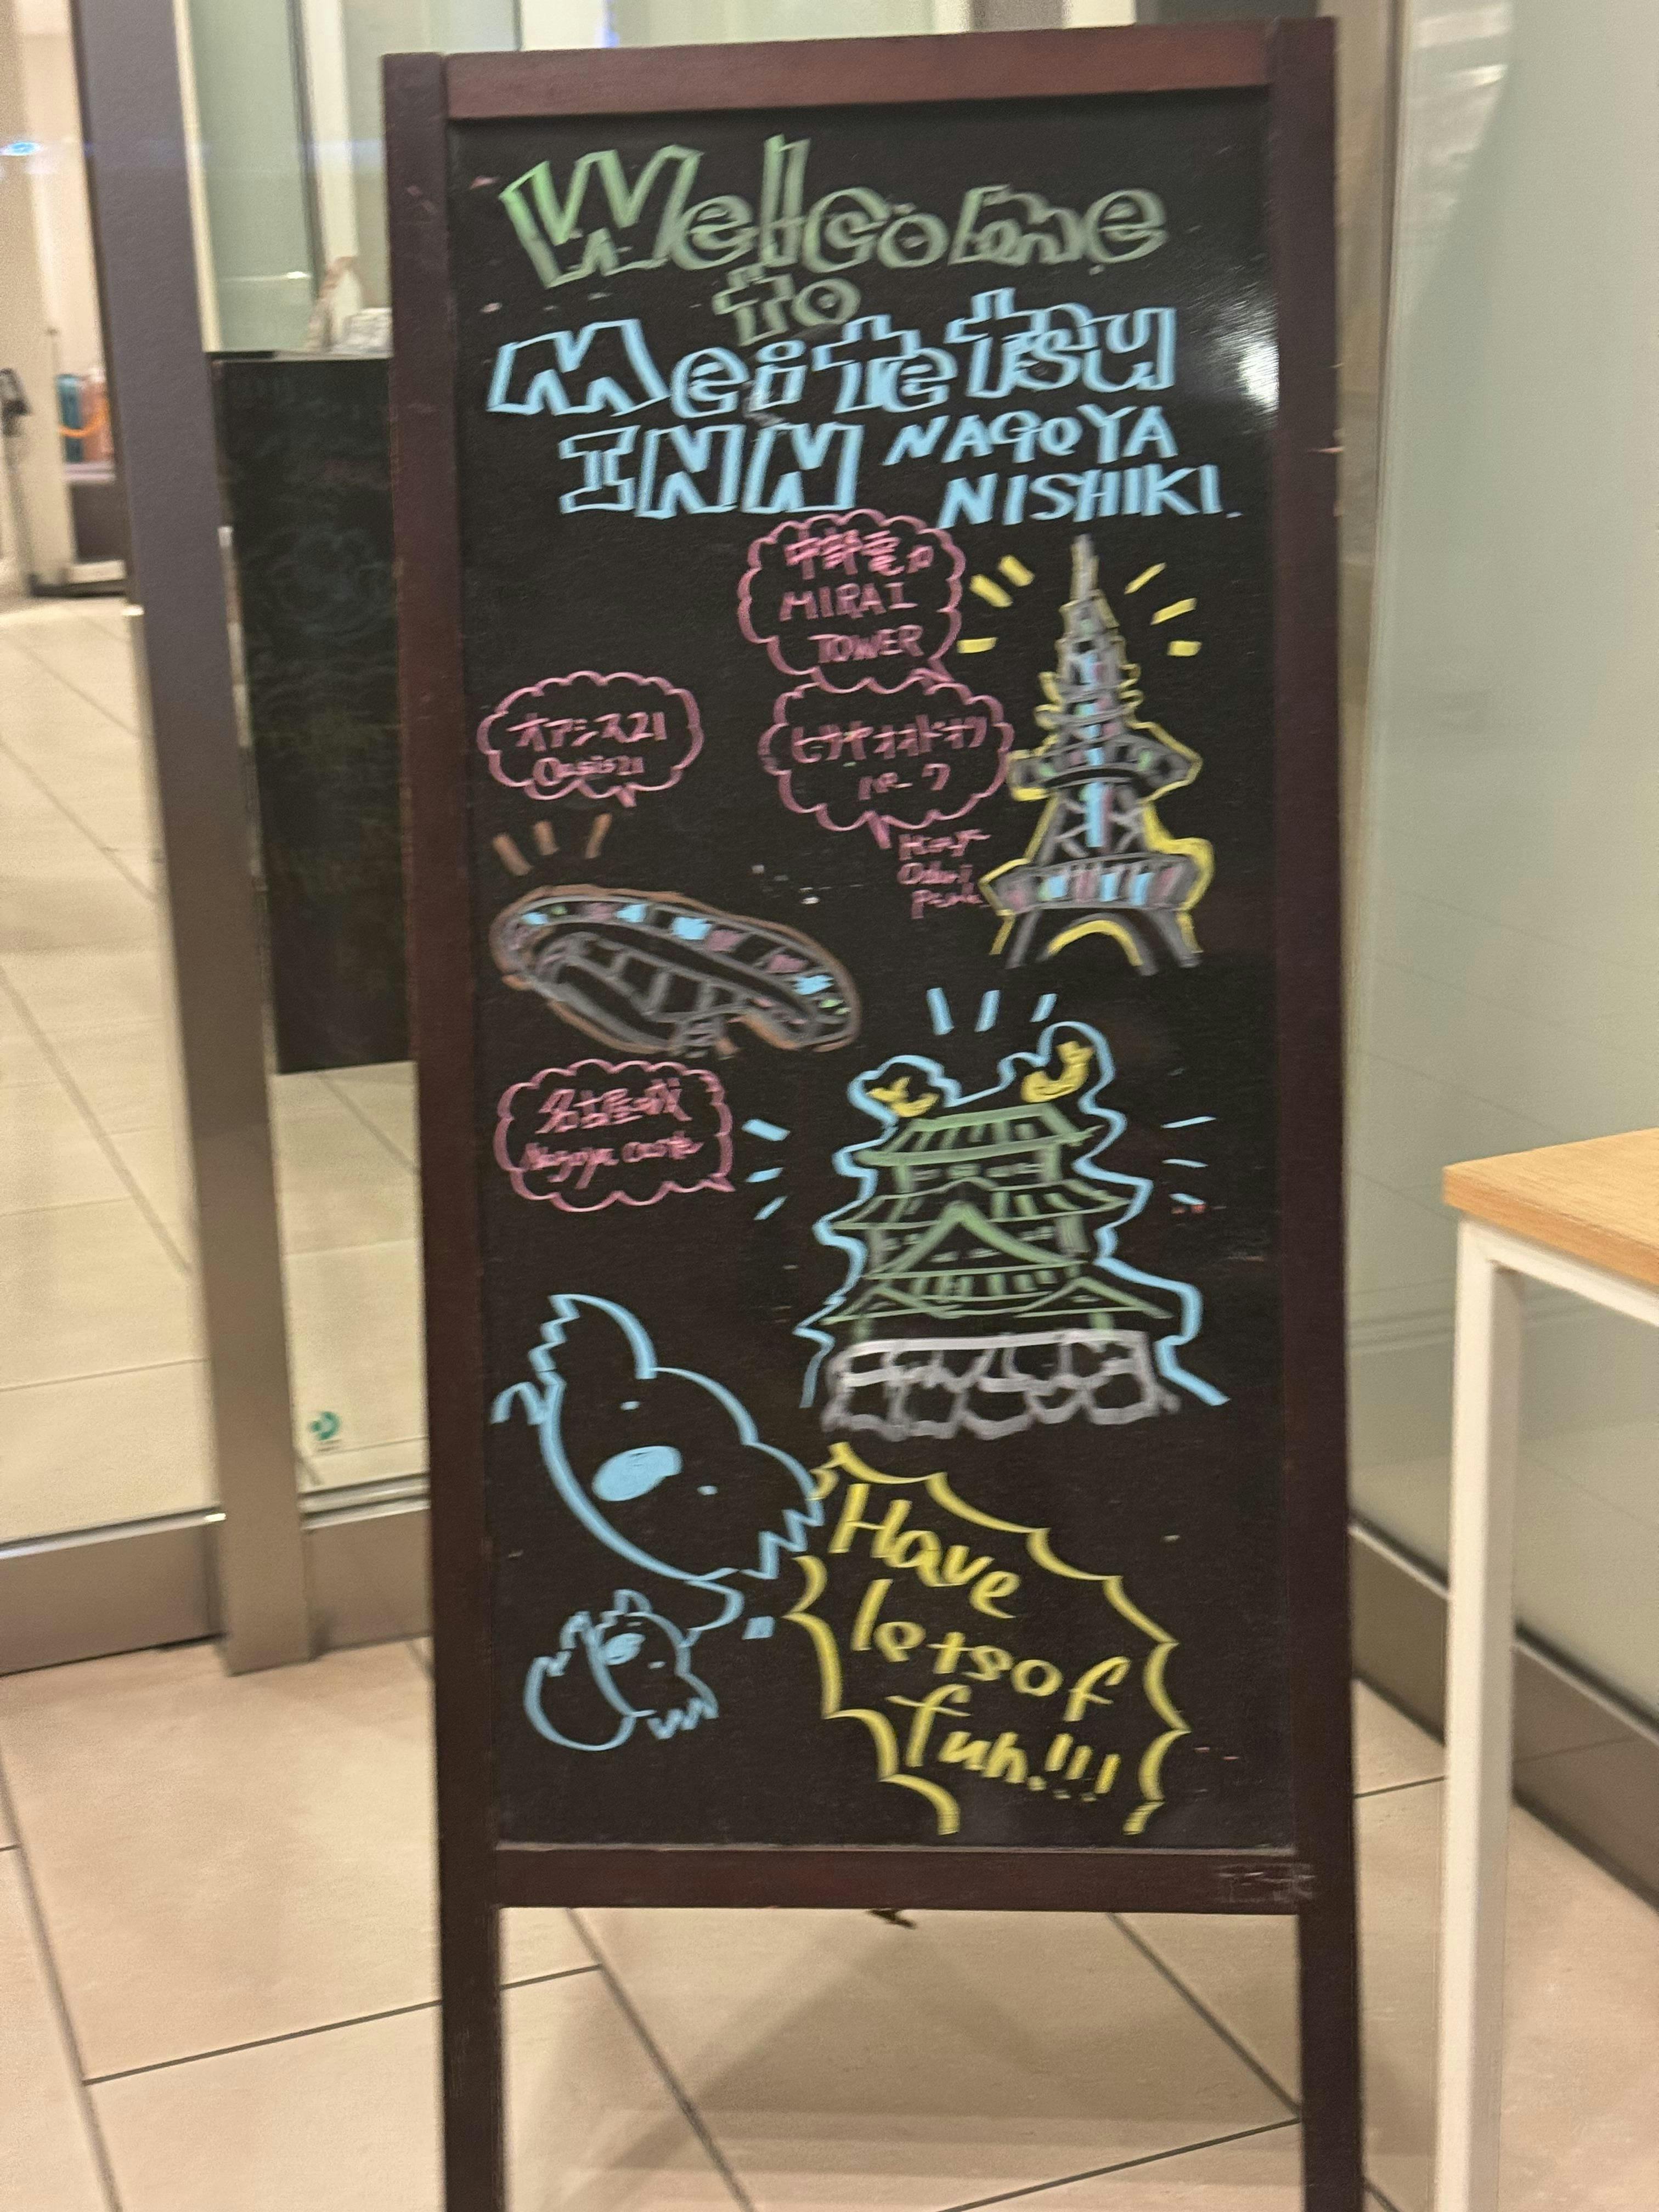 Welcome
to
Meitetsu
INN NAGOYA
NISHIKI.
中部電力
MIRAI
TOWER
オアシス21
Oasis21
ヒサヤオオドオリ
パーク
Odori
Park
名古屋城
Nagoya castle
Have
lets of
fun!!!